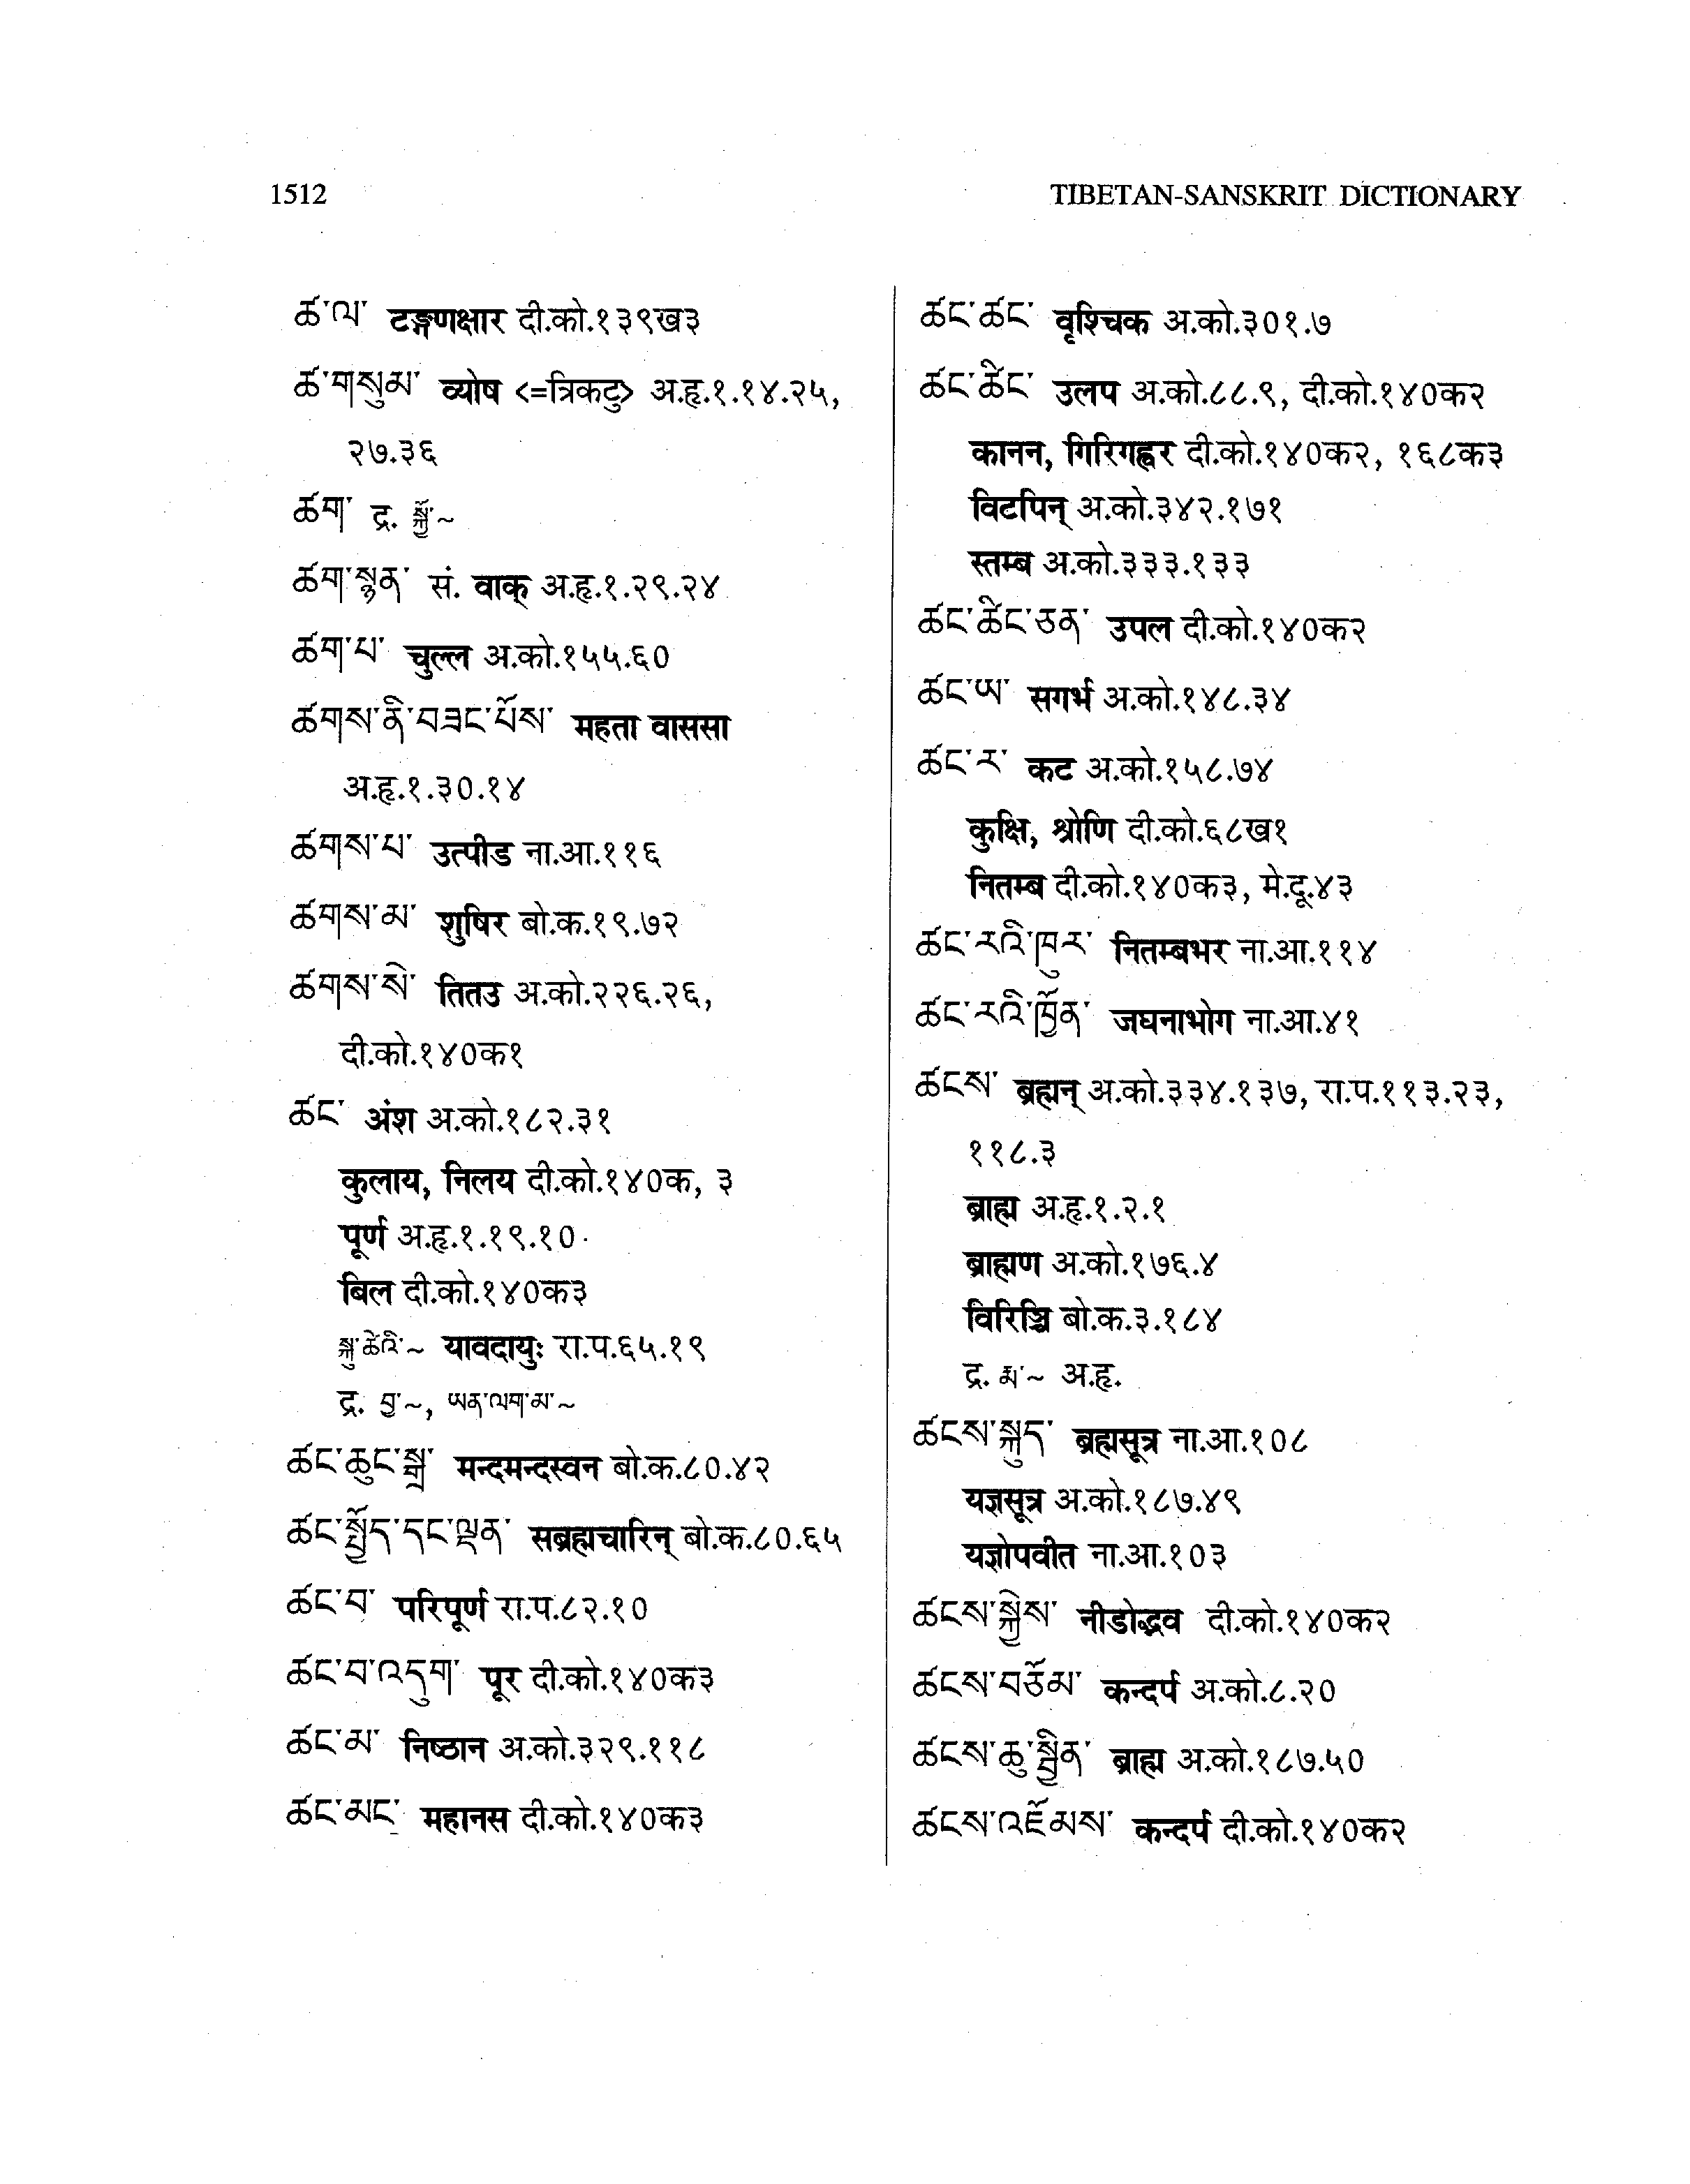 1512
TIBETAN-SANSKRIT DICTIONARY
ཚ་ལ་ टङ्गणक्षार दी.को.१३९ख३
ཚ་གསུམ་ व्योष <=त्रिकटु> अ.हृ.१.१४.२५,
२७.३६
ཚག་ द्र. སྐྱོ་~
ཚག་སྙན་ सं. वाक् अ.हृ.१.२९.२४
ཚག་པ་ चुल्ल अ.को.१५५.६०
ཚགས་ནི་བཟང་པོས་ महता वाससा
अ.हृ.१.३०.१४
ཚགས་པ་ उत्पीड ना.आ.११६
ཚགས་མ་ शुषिर बो.क.१९.७२
ཚགས་སེ་ तितउ अ.को.२२६.२६,
दी.को.१४०क१
ཚང་ अंश अ.को.१८२.३१
कुलाय, निलय दी.को.१४०क, ३
पूर्ण अ.हृ.१.१९.१०
बिल दी.को.१४०क३
སྐུ་ཚེའི་~ यावदायुः रा.प.६५.१९
द्र. བྱ་~, ཡན་ལག་མ་~
ཚང་ཆུང་སྒྲ་ मन्दमन्दस्वन बो.क.८०.४२
ཚང་སྤྱོད་དང་ལྡན་ सब्रह्मचारिन् बो.क.८०.६५
ཚང་བ་ परिपूर्ण रा.प.८२.१०
ཚང་བ་འདུག་ पूर दी.को.१४०क३
ཚང་མ་ निष्ठान अ.को.३२९.११८
ཚང་མང་ महानस दी.को.१४०क३
ཚང་ཚང་ वृश्चिक अ.को.३०१.७
ཚང་ཚིང་ उलप अ.को.८८.९, दी.को.१४०क२
कानन, गिरिगह्वर दी.को.१४०क२, १६८क३
विटपिन् अ.को.३४२.१७१
स्तम्ब अ.को.३३३.१३३
ཚང་ཚིང་ཅན་ उपल दी.को.१४०क२
ཚང་ཡ་ सगर्भ अ.को.१४८.३४
ཚང་ར་ कट अ.को.१५८.७४
कुक्षि, श्रोणि दी.को.६८ख१
नितम्ब दी.को.१४०क३, मे.दू.४३
ཚང་རའི་ཁུར་ नितम्बभर ना.आ.११४
ཚང་རའི་ཁྱོན་ जघनाभोग ना.आ.४१
ཚངས་ ब्रह्मन् अ.को.३३४.१३७, रा.प.११३.२३,
११८.३
ब्राह्म अ.हृ.१.२.१
ब्राह्मण अ.को.१७६.४
विरिञ्चि बो.क.३.१८४
द्र. མ་~ अ.हृ.
ཚངས་སྐུད་ ब्रह्मसूत्र ना.आ.१०८
यज्ञसूत्र अ.को.१८७.४९
यज्ञोपवीत ना.आ.१०३
ཚངས་སྐྱེས་ नीडोद्भव दी.को.१४०क२
ཚངས་བཅོམ་ कन्दर्प अ.को.८.२०
ཚངས་ཆུ་སྦྱིན་ ब्राह्म अ.को.१८७.५०
ཚངས་འཇོམས་ कन्दर्प दी.को.१४०क२